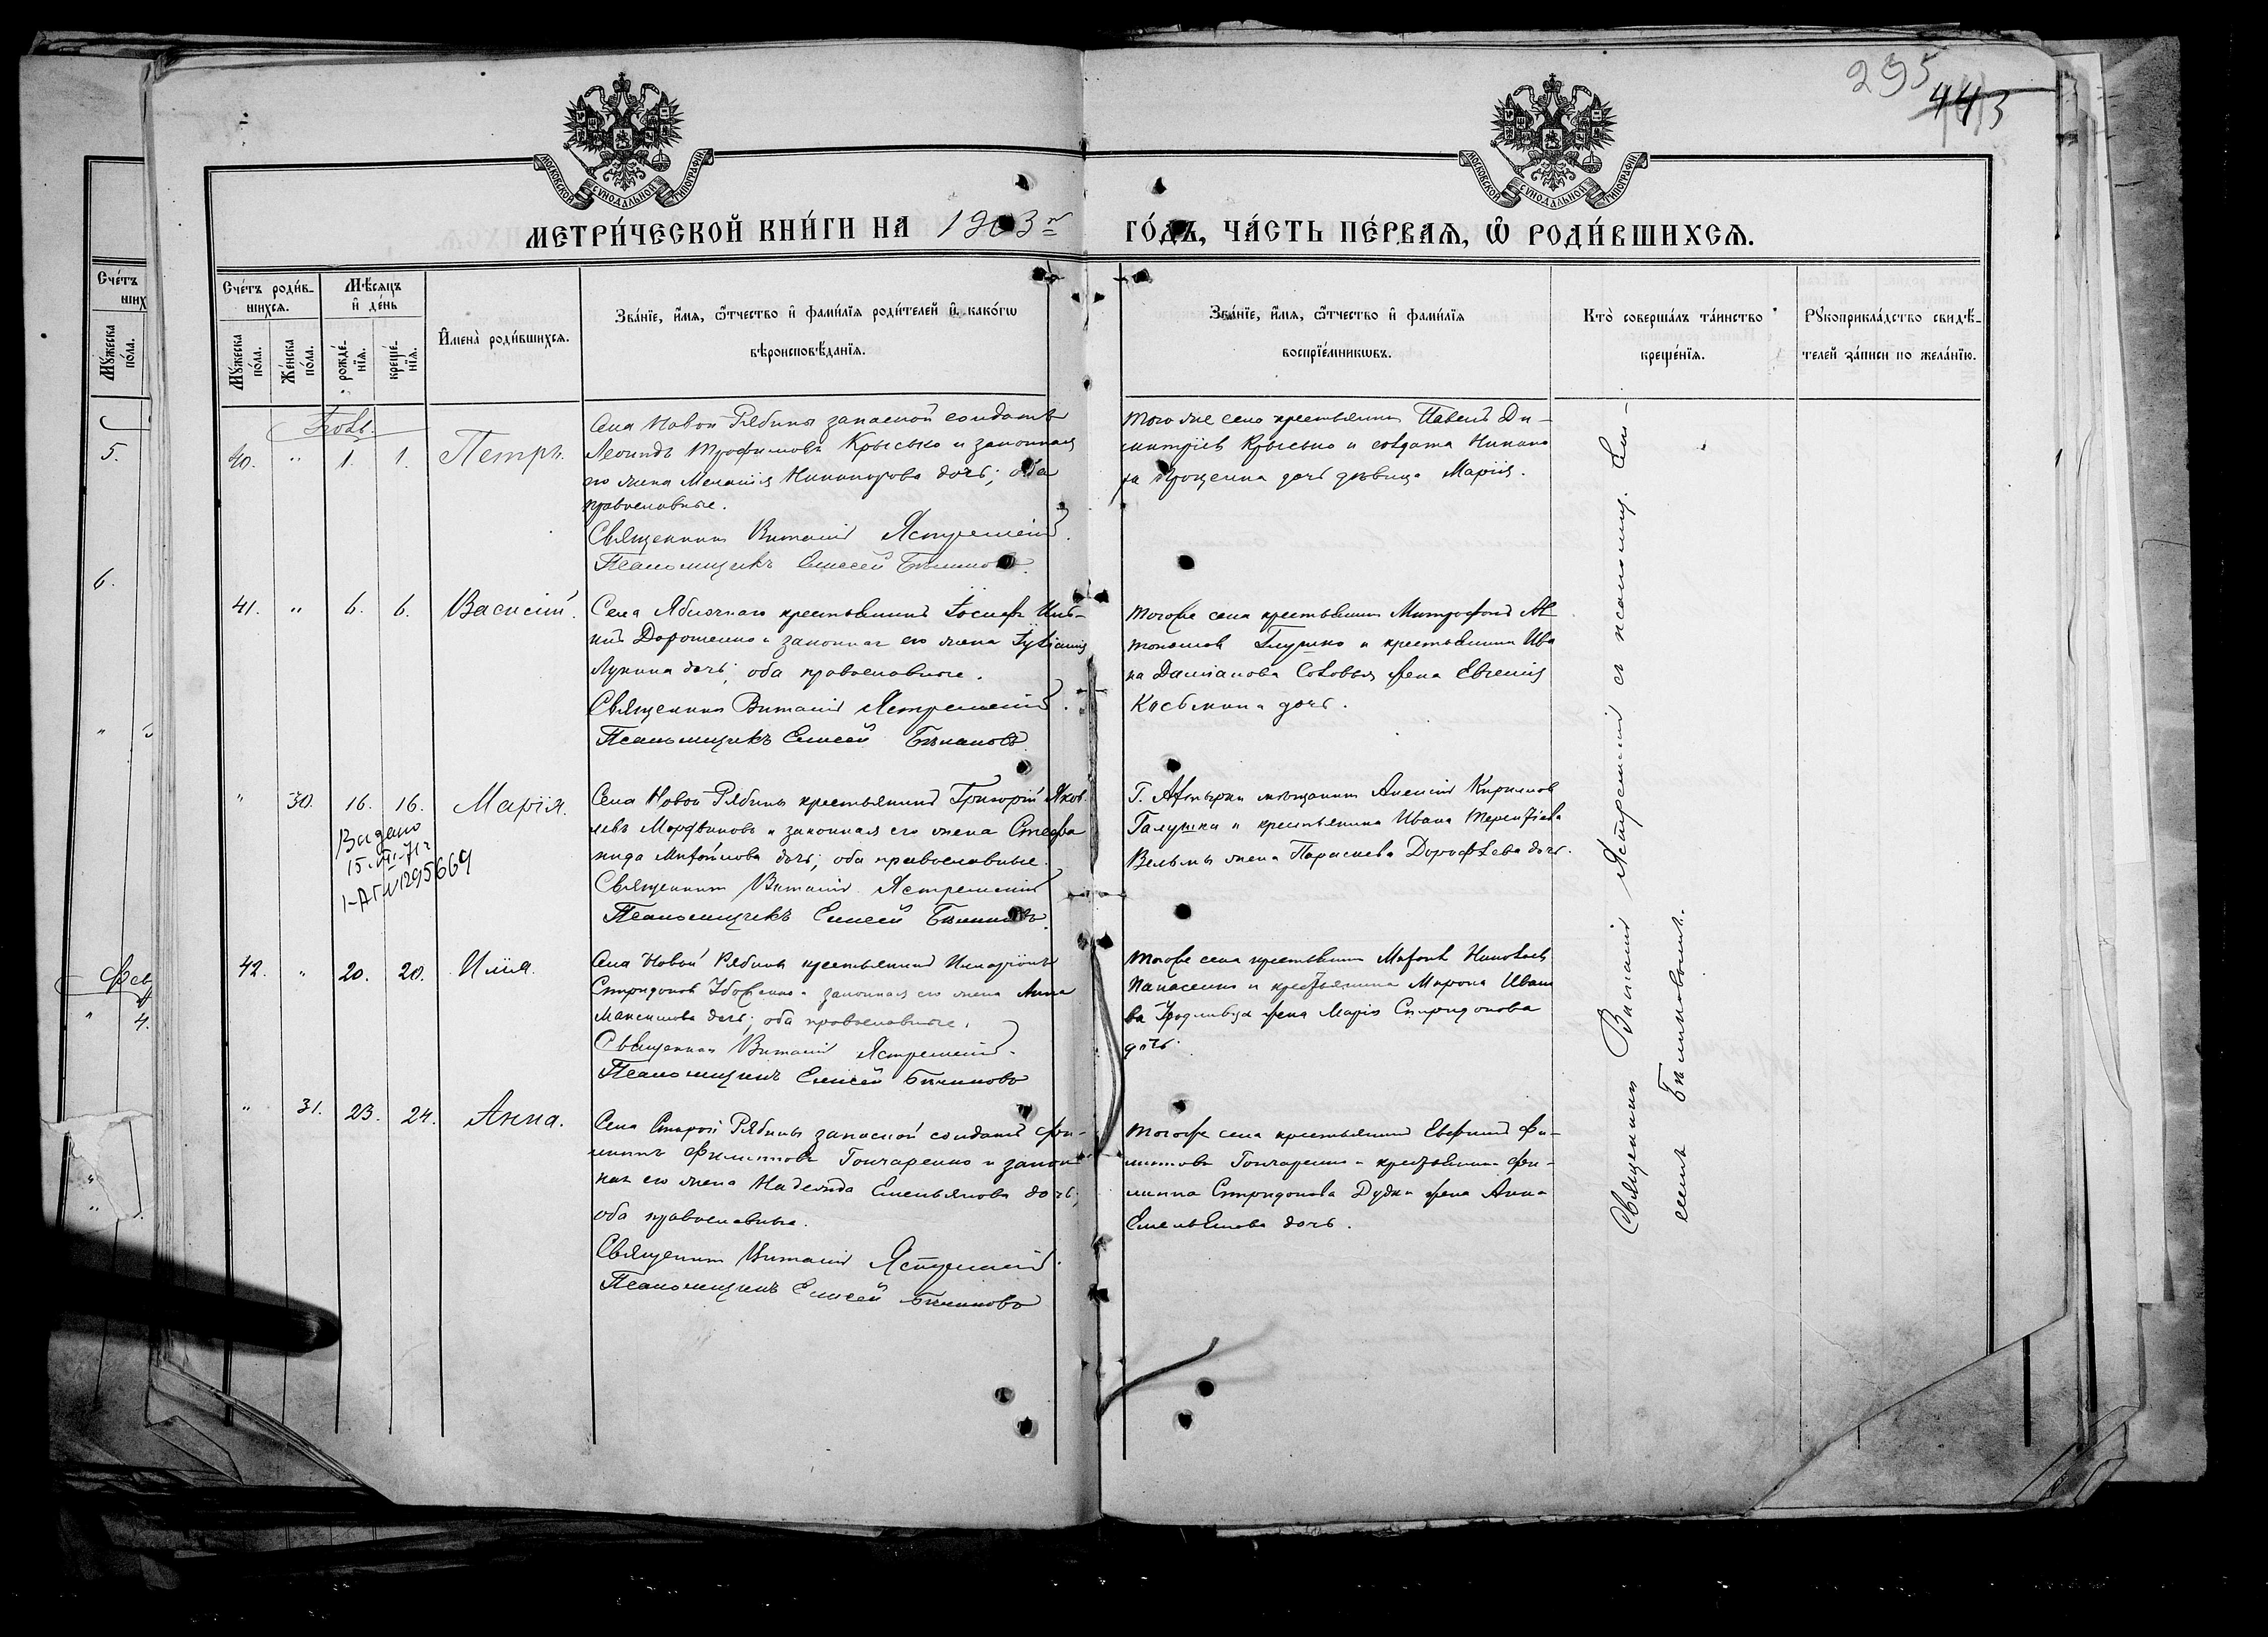 295
443
МОСКОВСКОЙ СѴНОДАЛЬНОЙ ТИПОГРАФІИ
МОСКОВСКОЙ СѴНОДАЛЬНОЙ ТИПОГРАФІИ
МЕТРИ́ЧЕСКОЙ КНИ́ГИ НА 1903 г
ГО́ДЪ, ЧА́СТЬ ПЕ́РВАѦ, Ѡ҆ РОДИ́ВШИХСѦ.
Сче́тъ
ших
Мꙋ́жеска по́ла.
5.
6.
Фев
4.
Сче́тъ роди́в-
шихсѧ.
Мꙋ́жеска по́ла.
Же́нска по́ла.
Мѣ́сѧцъ
и҆ де́нь
рожде́-нїѧ.
креще́-нїѧ.
И҆мена̀ роди́вшихсѧ.
Зва́нїе, и҆́мѧ, ѻ҆́тчество и҆ фами́лїѧ роди́телей и҆ како́гѡ
вѣроисповѣ́данїѧ.
Зва́нїе, и҆́мѧ, ѻ҆́тчество и҆ фами́лїѧ
воспрїе́мникѡвъ.
Кто̀ соверша́лъ та́инство
креще́нїѧ.
Рꙋкоприкла́дство свидѣ́-
телей за́писи по жела́нїю.
40. " 1. 1. Петръ.
Села Новой Рябины запасной солдатъ
Леонидъ Трофимовъ Крысько и законная
его жена Меланія Никанорова дочь; оба
православные.
Священникъ Виталій Ястремскій.
Псаломщикъ Елисей
Того же села крестьянинъ Павелъ Ди-
митріевъ Крысько и солдата Никано
ра Прощенка дочь дѣвица Марія.
41. " 6. 6. Василій.
Села Яблочнаго крестьянинъ Іосифъ
Дорошенко и законная его жена Іуліанія
Лукина дочь; оба православные.
Священникъ Виталій Ястремскій.
Псаломщикъ Елисей
Тогоже села крестьянинъ Митрофанъ
Глушко и крестьянина Ива
на Даміанова Соловья жена Евгенія
Косьмина дочь.
" 30. 16. 16. Марія.
Видано
15-VII-71г
1-АГ N1295669
Села Новой Рябины крестьянинъ Григорій Яков
левъ Мордвиновъ и законная его жена Стефа
нида дочь; оба православные.
Священникъ Виталій Ястремскій
Псаломщикъ Елисей
Г. Ахтырки мѣщанинъ Алексій Кириловъ
Галушка и крестьянина Ивана Терентіева
Вельмы жена Параскева Дорофѣева дочь.
42. " 20. 20. Илія.
Села Новой Рябины крестьянинъ Иларіонъ
Спиридоновъ и законная его жена Анна
Максимова дочь; оба православные.
Священникъ Виталій Ястремскій.
Псаломщикъ Елисей
Тогоже села крестьянинъ
Панасенко и крестьянина Мирона Ивано
ва жена Марія Спиридонова
дочь.
" 31. 23. 24. Анна.
Села Старой Рябины запасной солдатъ Фи-
липпъ Филипповъ Гончаренко и закон
ная его жена Надежда Емельянова дочь;
оба православные.
Священникъ Виталій Ястремскій.
Псаломщикъ Елисей
Тогоже села крестьянинъ Евфимій Фи-
липповъ Гончаренко и крестьянина Фи-
липпа Спиридонова Дудки жена Анна
Емельянова дочь.
Священникъ Виталій Ястремскій съ псаломщ. Ели-
сеемъ